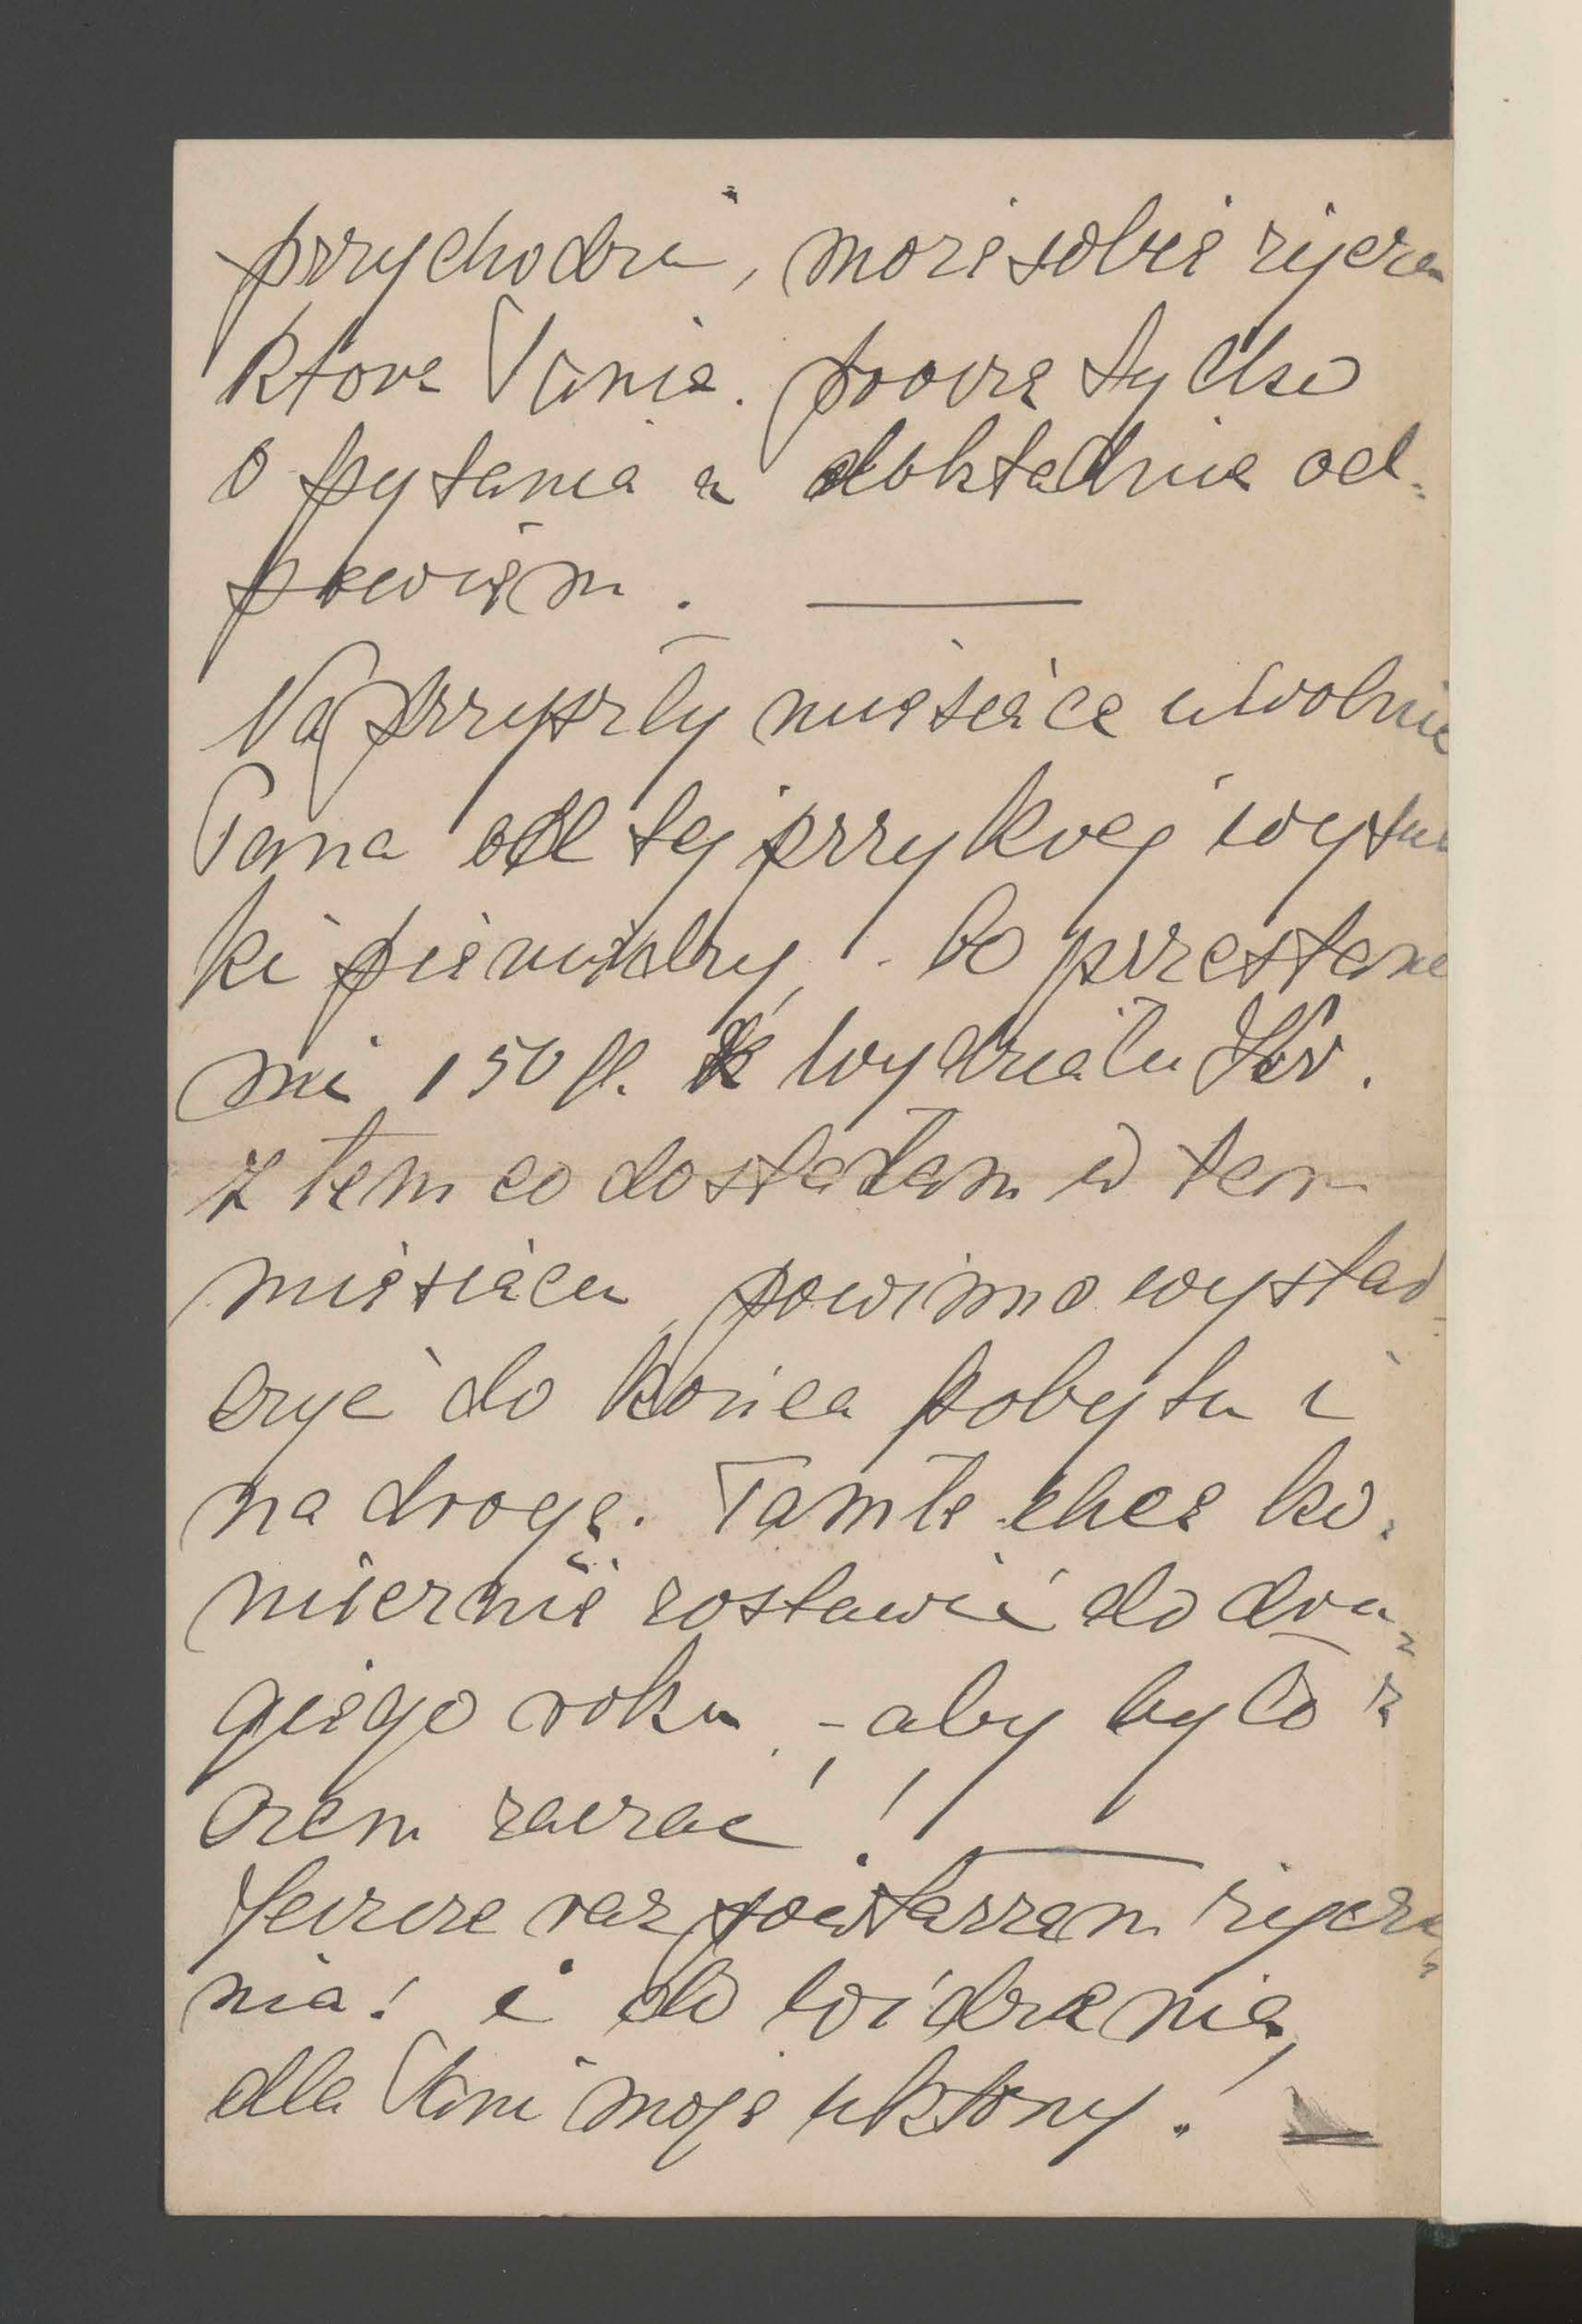 przychodzi, może sobie życzen
które Panie. proszę tylko
o pytania a dokładnie od-
powiem.
Na przyszły miesiąc uwolnię
Pana od tej przykrej wysył
ki pieniędzy, - bo przestane
mi 150 fl. z Wydziału Kr.
z tem co dostałam w tem
miesiącu, powinno wystar-
czyć do końca pobytu i
na drogę. Tamte chcę ko-
niecznie zostawić do dru-
giego roku, - aby było z
czem zacząć!
Jeszcze raz powtarzam życze-
nia! i do widzenia,
dla Pani moje ukłony.